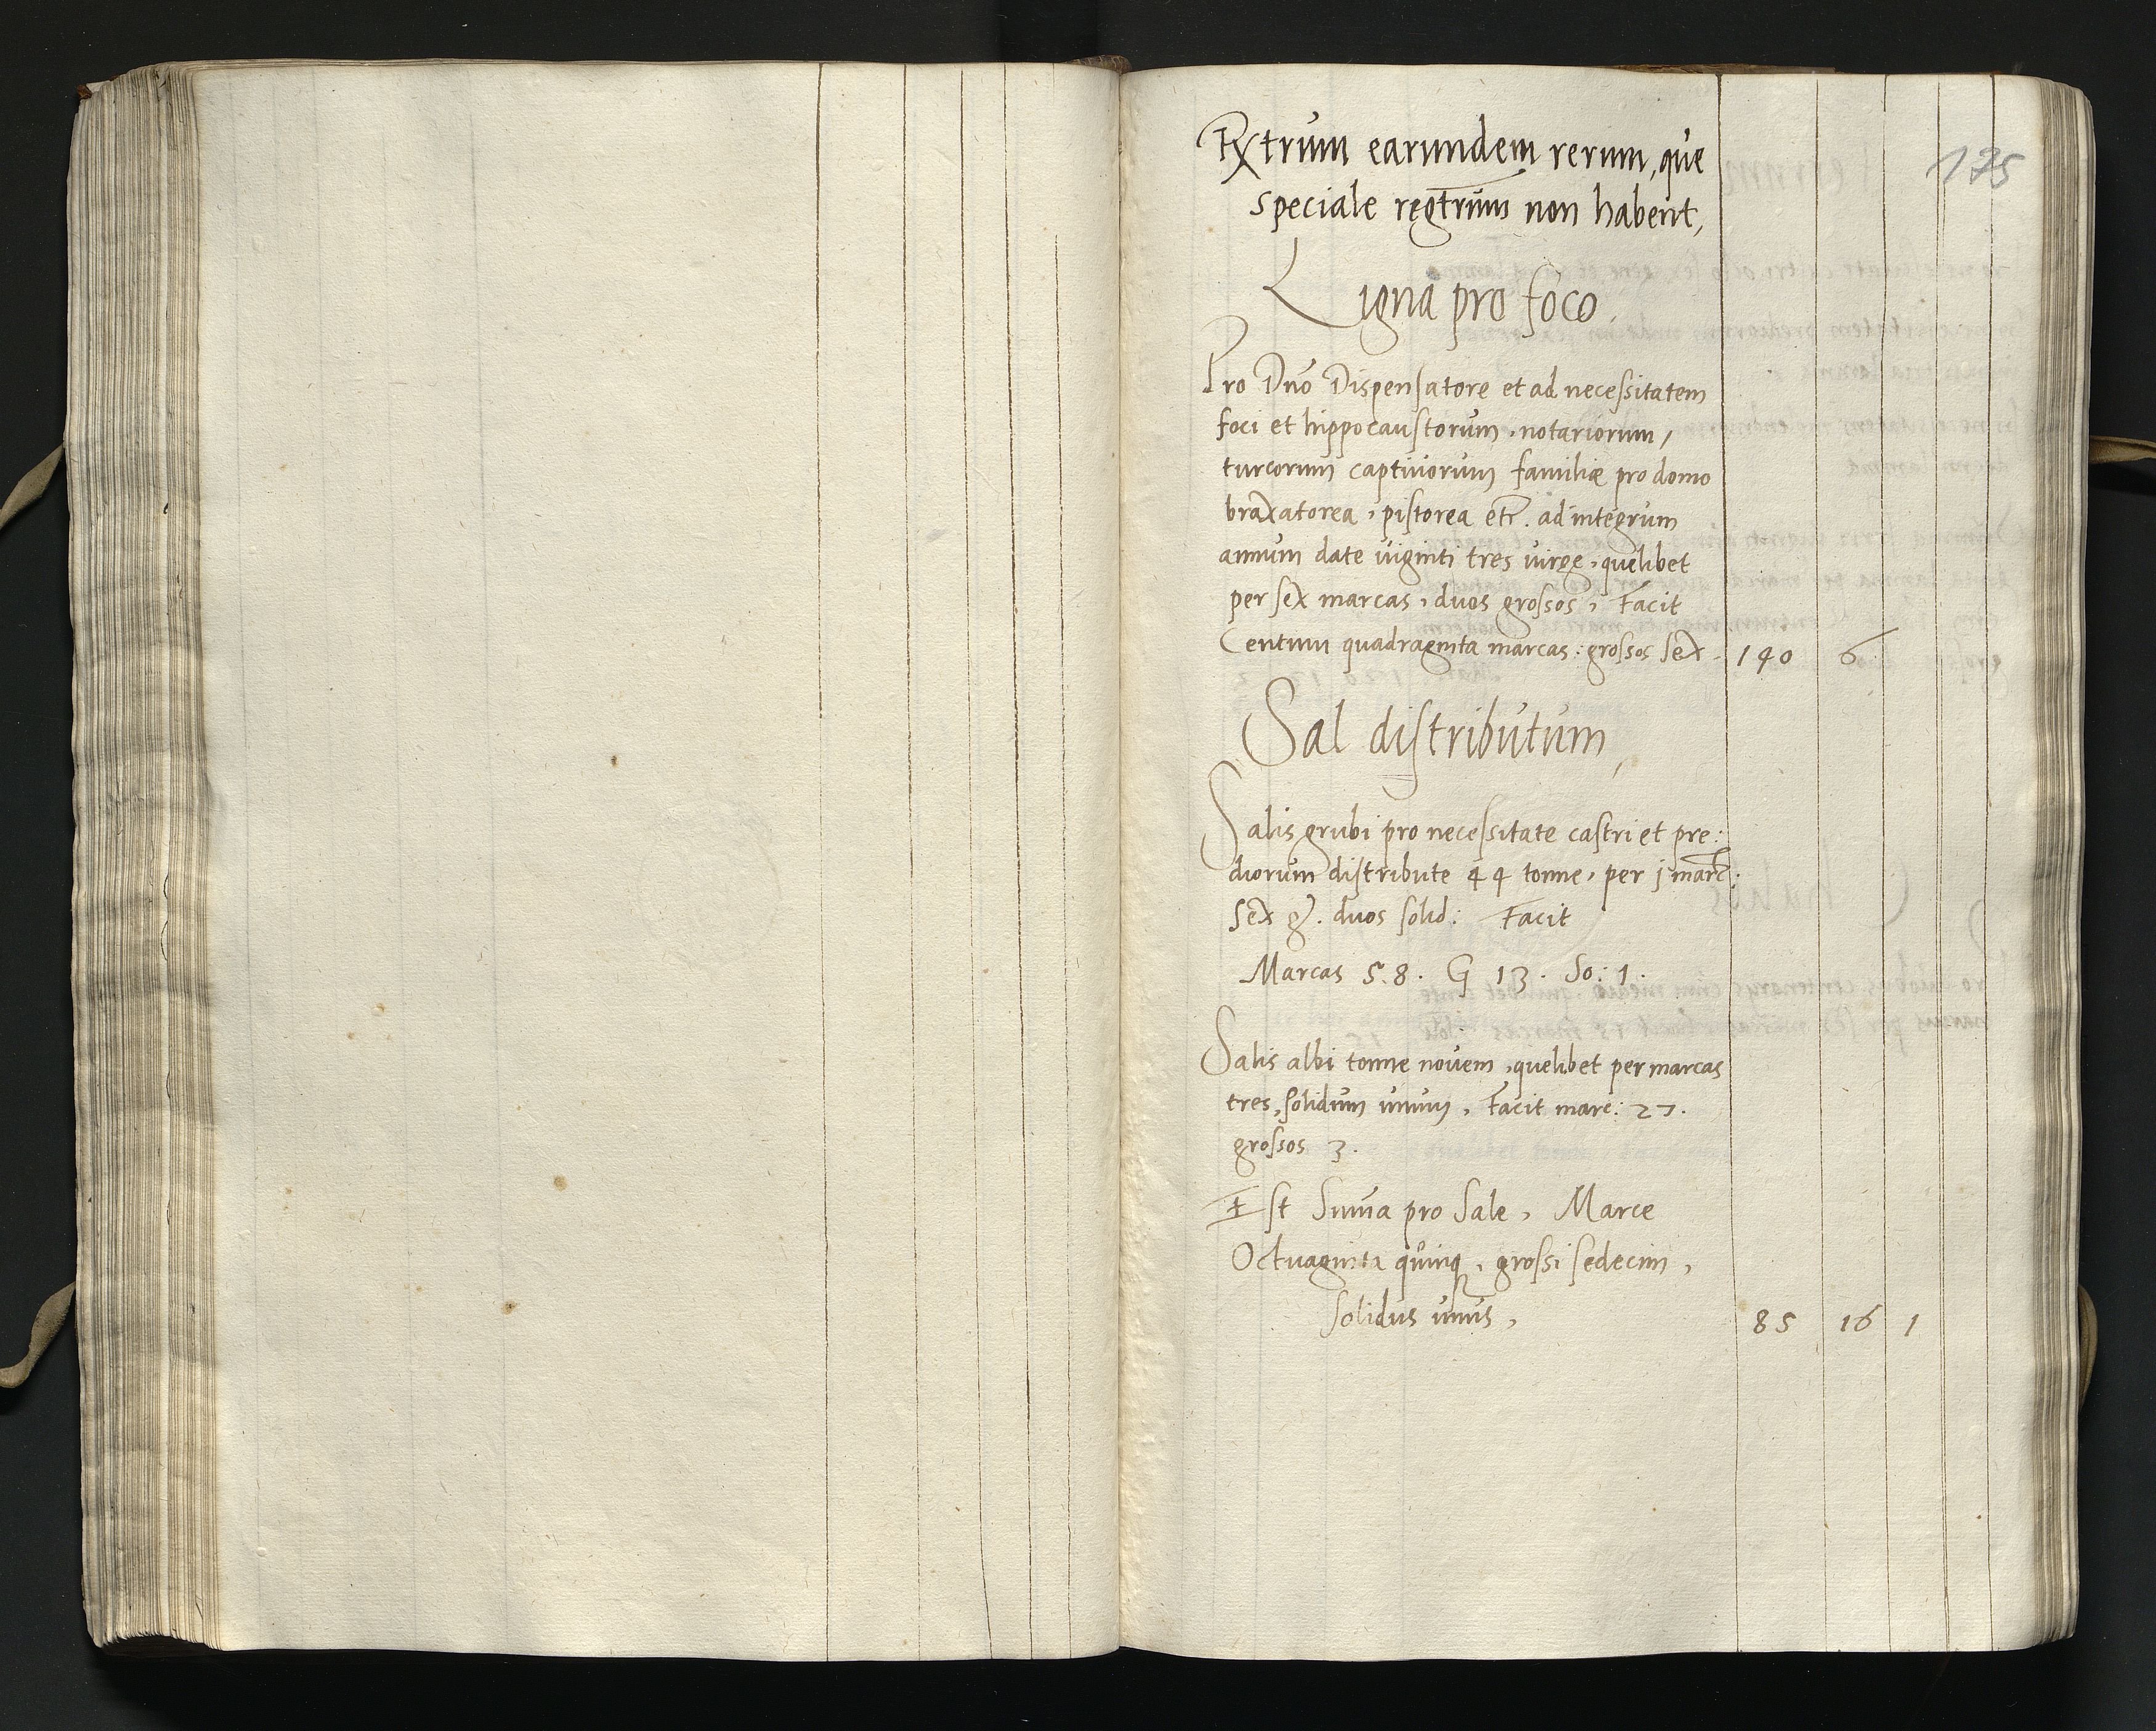 Rx̄trum earundem rerum, que
175
speciale regtrum non habent,
Ligna pro foco.
Pro Dno Dispensatore et ad necessitatem
foci et hippocaustorum, notariorum,
turcorum captivorum familiæ pro domo
braxatorea, pistorea etc. ad integrum
annum date viginti tres virge, quelibet
per sex marcas, duos grossos, Facit
Centum quadraginta marcas: grossos sex. 140 6
Sal distributum,
Salis grubi pro necessitate castri et pre:
diorum distribute 44 tonne, per j marc:
sex g. duos solid: Facit
Marcas 58. G 13. So: 1.
Salis albi tonne novem, quelibet per marcas
tres, solidum unum, Facit marc: 27.
grossos 3.
Est Suma pro Sale, Marce
Octuaginta quinq, grossi sedecim,
solidus unus, 85 16 1